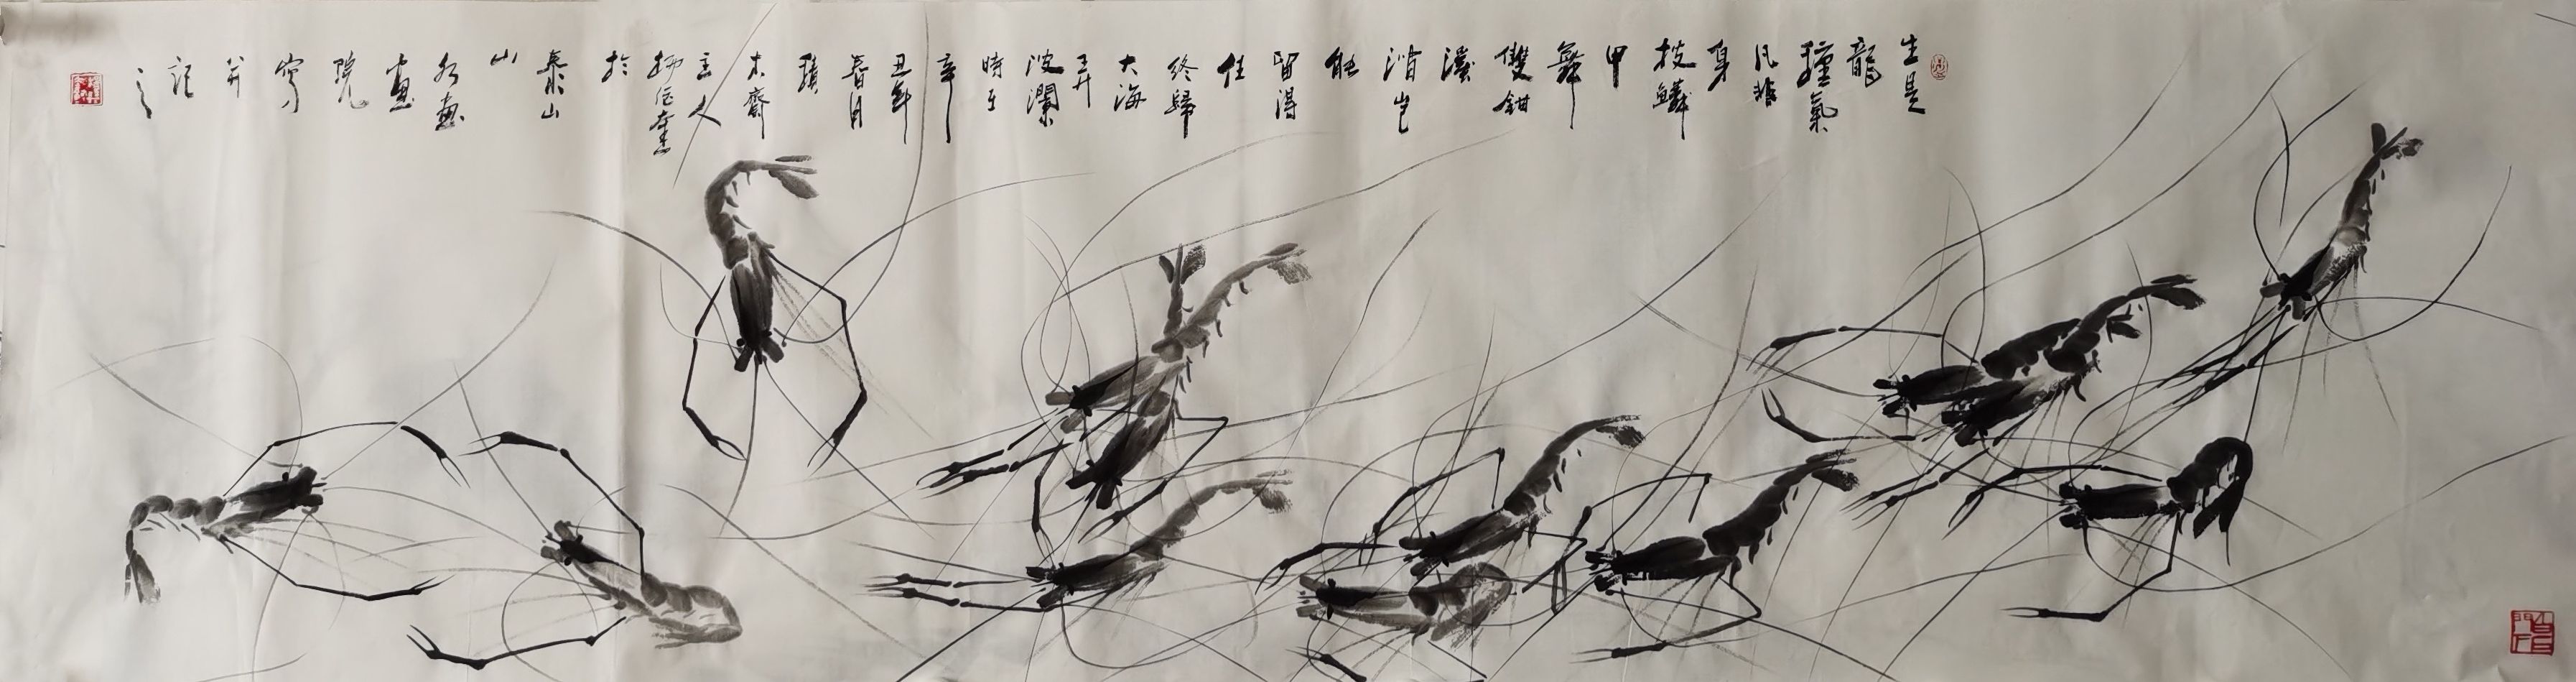 生是
龍
種氣
凡非
身
披鱗
甲
舞
雙鉗
溪
澗豈
能
留得
住
終歸
大海
弄
波瀾
時至
辛
丑年
春月
積
木齋
主人
於
泰山
山
水畫
畫
院
寫
并
記
之